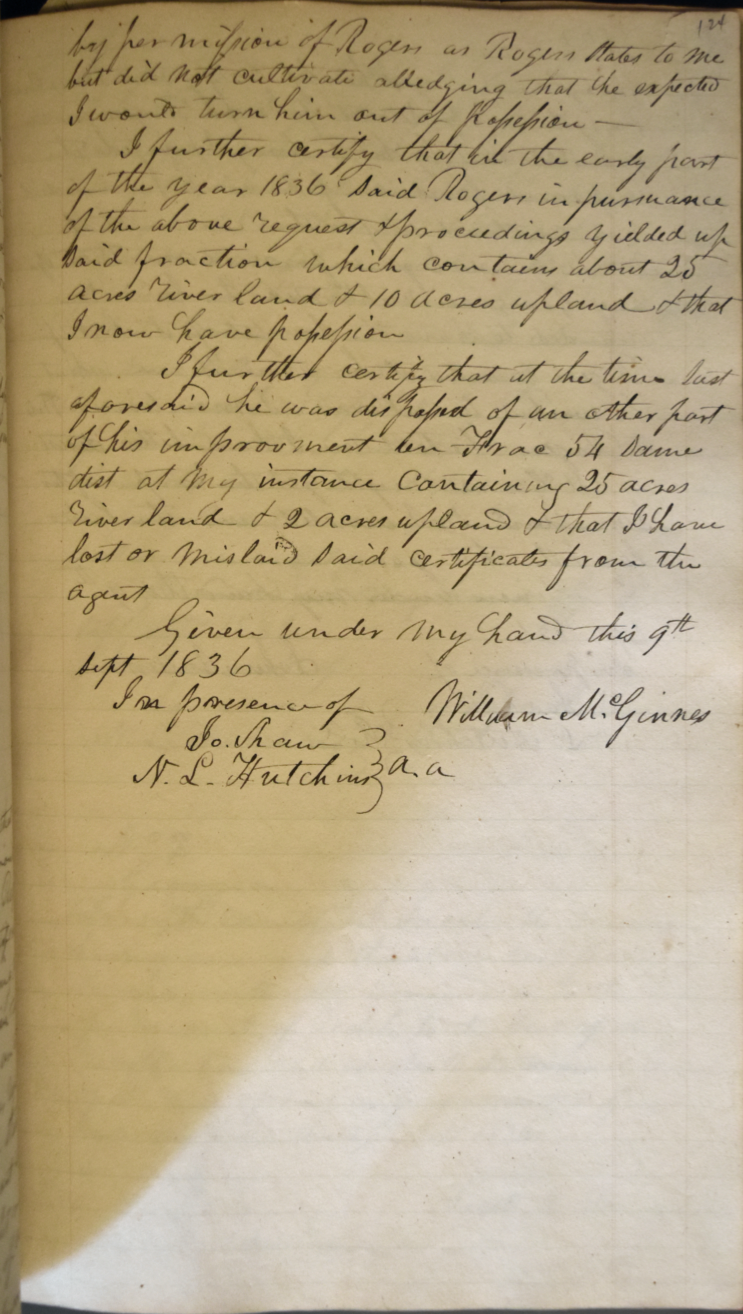 124
by permission of Rogers as Rogers states to me
but did not cultivate alledging that he expected
I would turn him out of possession —
I further certify that in the early part
of the year 1836 said Rogers in pursuance
of the above request & proceedings yielded up
said fraction which contains about 25
acres river land & 10 acres upland & that
I now have possession
I further certify that at the time last
aforesaid he was dispossed of an other part
of his improvment on Frac 54 same
dist at my instance Containing 25 acres
river land & 2 acres upland & that I have
lost or mislaid said certificates from the
agent
Given under my hand this 9th
Sept 1836
In presence of William McGinnes
Jo. Shaw
N. L. Hutchins } a. a